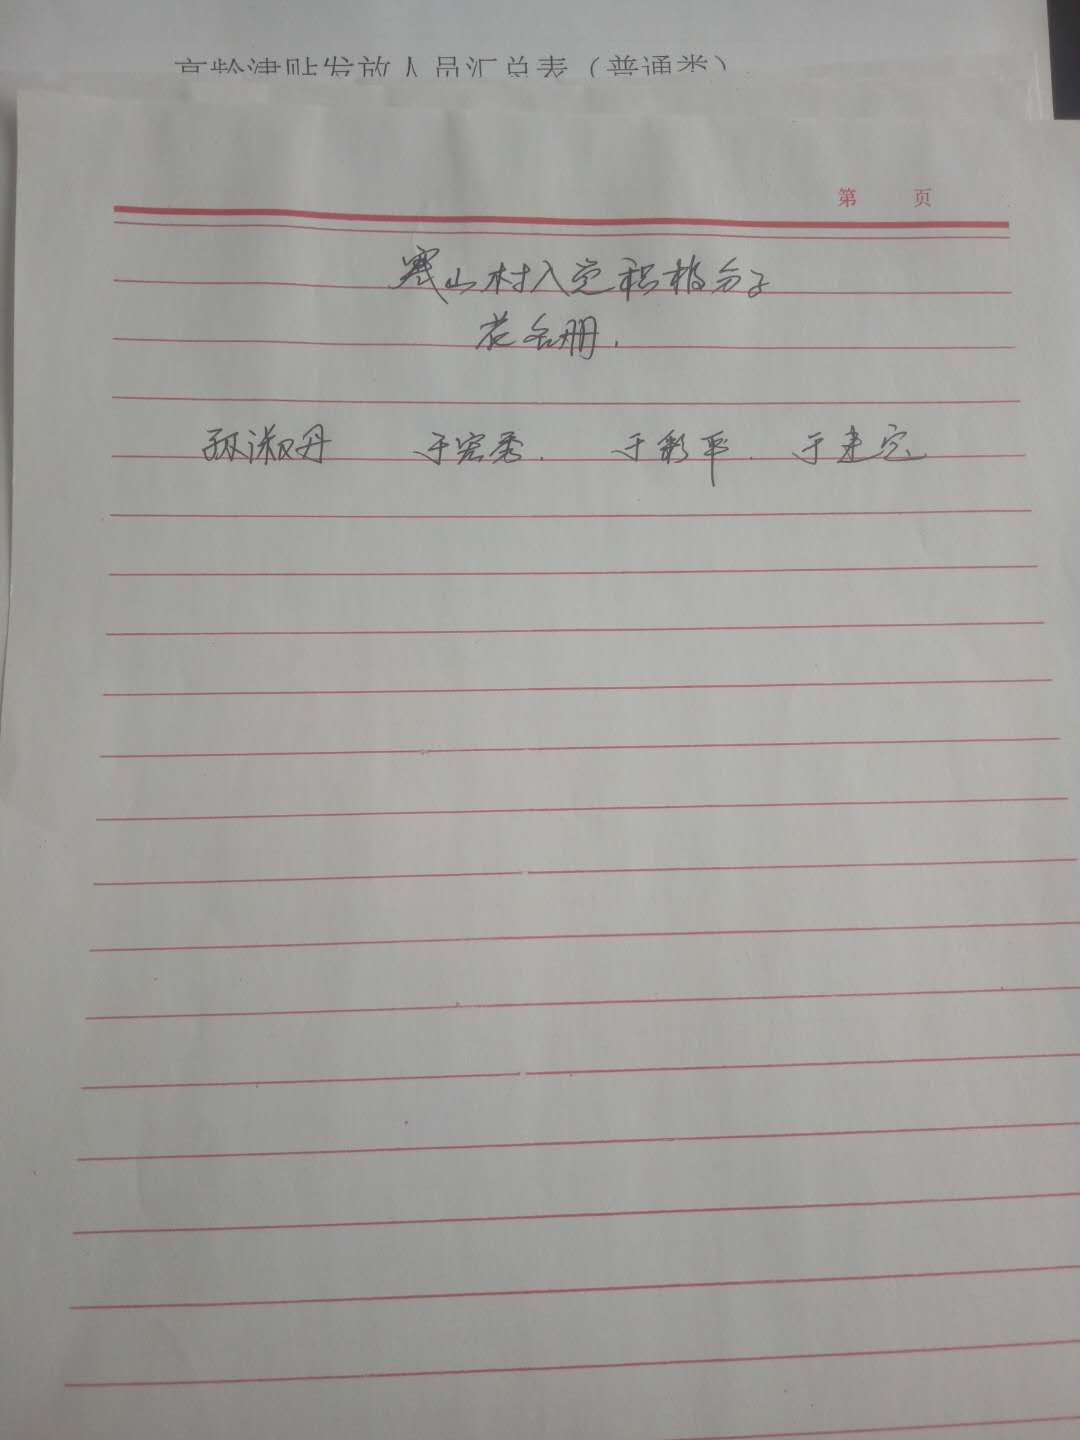 高龄津贴发放人员汇总表（普通类）
第 页
寒山村入党积极分子
花名册.
孙淑丹 于宏秀. 于彩平. 于建宝